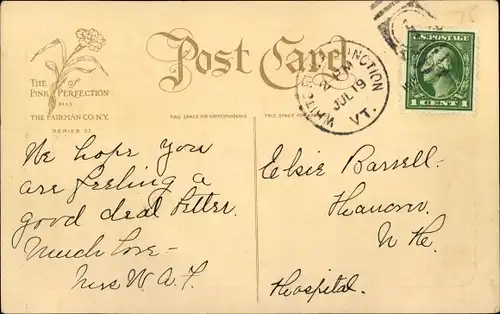 Post Card
THE PINK OF PERFECTION
THE FAIRMAN CO. N.Y.
SERIES
THIS SPACE FOR CORRESPONDENCE.
THIS SPACE FOR ADDRESS.
WHITE R JUNCTION
JUL 19
VT.
U.S. POSTAGE
1 CENT 1
We hope you
are feeling a
good deal better.
Much love -
Mrs W. A. F.
Elsie Barrell -
Hanover
N H.
Hospital.